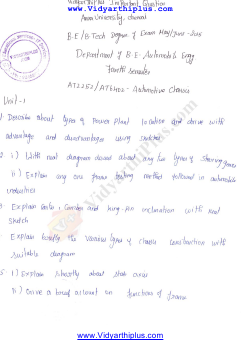 www.Vidyarthiplus.com
Vidyarthiplus Important Question
Anna University, Chennai
B.E / B.Tech Degree Exam May/June-2015
Department of B.E-Automobile Engg
Fourth Semester
AT2251/AT6402- Automotive Chassis
Unit-1
Describe about types of Power Plant location and drive with
advantage and disadvantages using sketches
2 i) With neat diagram about any two types of Steering
ii) Explain any one frame testing method followed in automobile
industries
Explain Castor, Camber and king-pin inclination with neat
sketch
Explain briefly the Various types of chassis construction with
suitable diagram
i) Explain shortly about stub axles
ii) Give a brief account on functions of frame
www.Vidyarthiplus.com